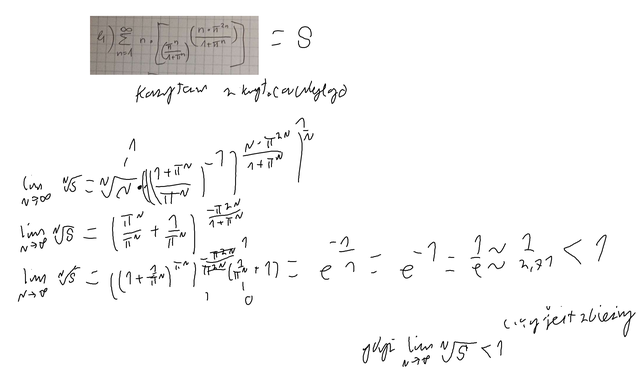 h) \sum_{n=1}^{\infty} n \cdot \left[ \left(\frac{\pi^n}{1+\pi^n}\right)^{\left(\frac{n \cdot \pi^{2n}}{1+\pi^n}\right)} \right] = S
Korzystam z kryt. Cauchy'ego
\lim_{n\to\infty} \sqrt[n]{S} = \sqrt[n]{n} \cdot \left(\left(\left(\frac{1+\pi^n}{\pi^n}\right)^{-1}\right)^{\frac{n \cdot \pi^{2n}}{1+\pi^n}}\right)^{\frac{1}{n}}
\lim_{n\to\infty} \sqrt[n]{S} = \left(\frac{\pi^n}{\pi^n} + \frac{1}{\pi^n}\right)^{\frac{-\pi^{2n}}{1+\pi^n}}
\lim_{n\to\infty} \sqrt[n]{S} = \left(\left(1+\frac{1}{\pi^n}\right)^{\pi^n}\right)^{\frac{-\pi^{2n}}{\pi^{2n}\left(\frac{1}{\pi^n}+1\right)}} = e^{\frac{-1}{1}} = e^{-1} = \frac{1}{e} \sim \frac{1}{2,71} < 1
jest zbieżny
gdyż \lim_{n\to\infty} \sqrt[n]{S} < 1